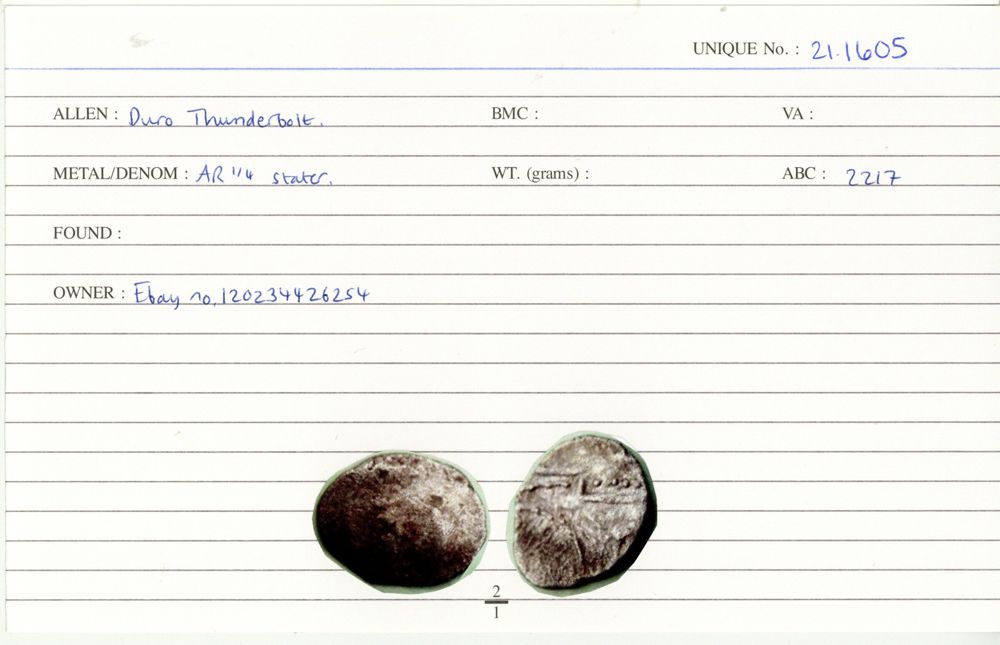 UNIQUE No. : 21.1605
ALLEN : Duro Thunderbolt. BMC : VA :
METAL/DENOM : AR 1/4 stater. WT. (grams) : ABC : 2217
FOUND :
OWNER : Ebay no. 120234426254
2
1